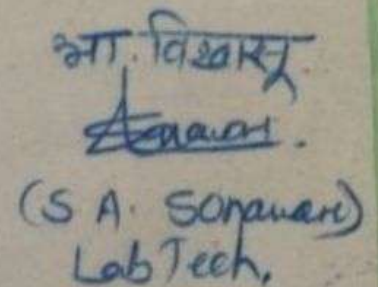 आ. विश्वासू
(S A. Sonawane)
Lab Tech.